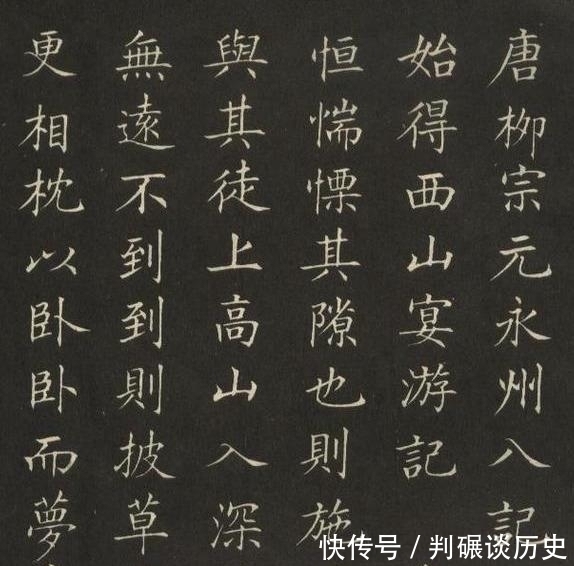 唐柳宗元永州八記
始得西山宴游記
恒惴慄其隙也則施
與其徒上高山入深
無遠不到到則披草
更相枕以卧卧而夢
快传号 / 判碾谈历史